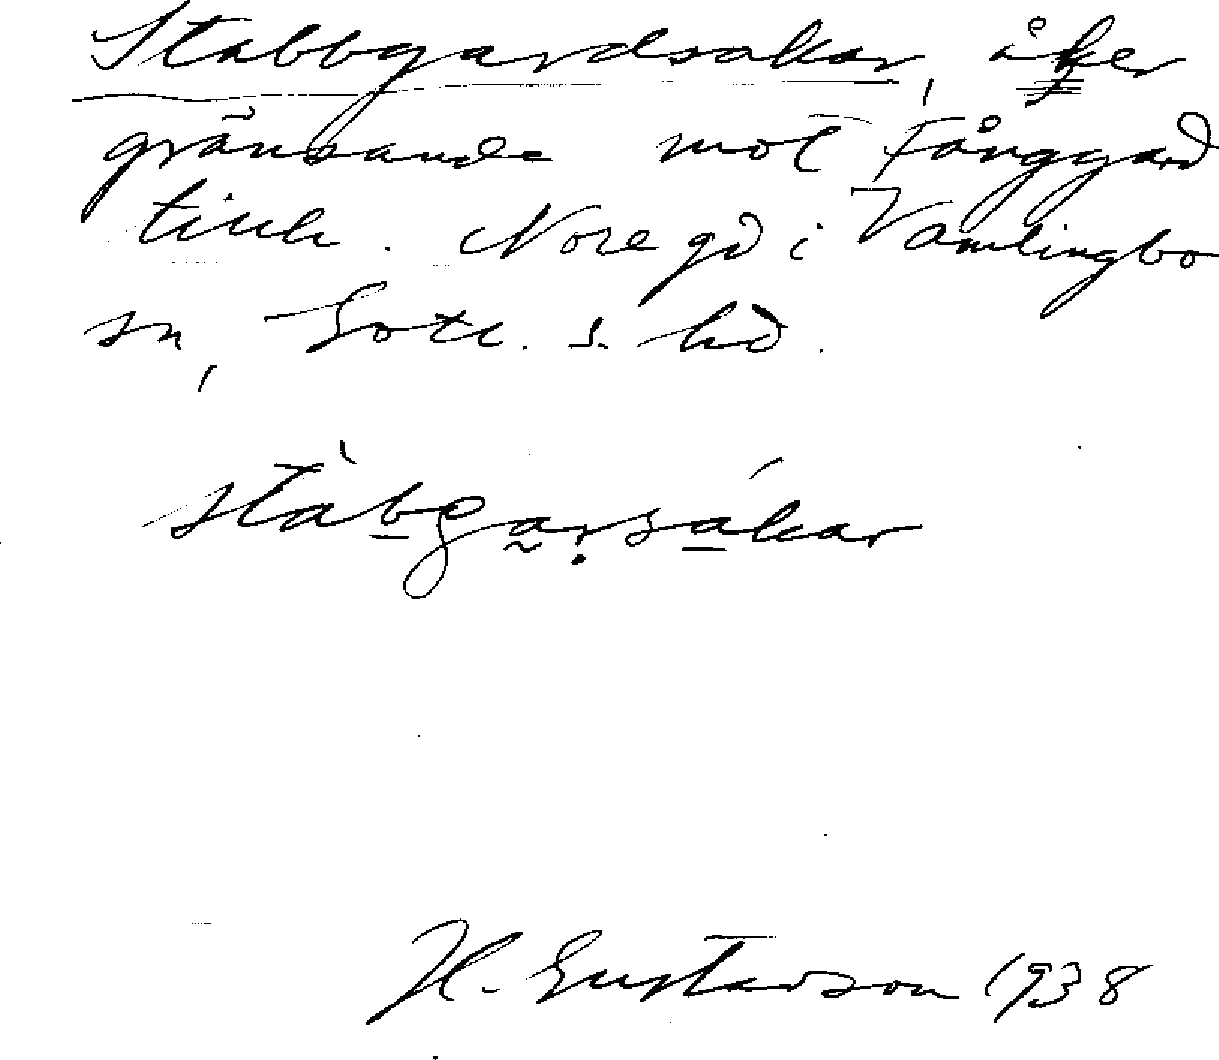 Stabbgardsakar, åker
gränsande mot Fånggard
tillh. Nore gd i Vamlingbo
sn, Gotl. s. hd.
stàbgarsákar
H. Gustavson 1938